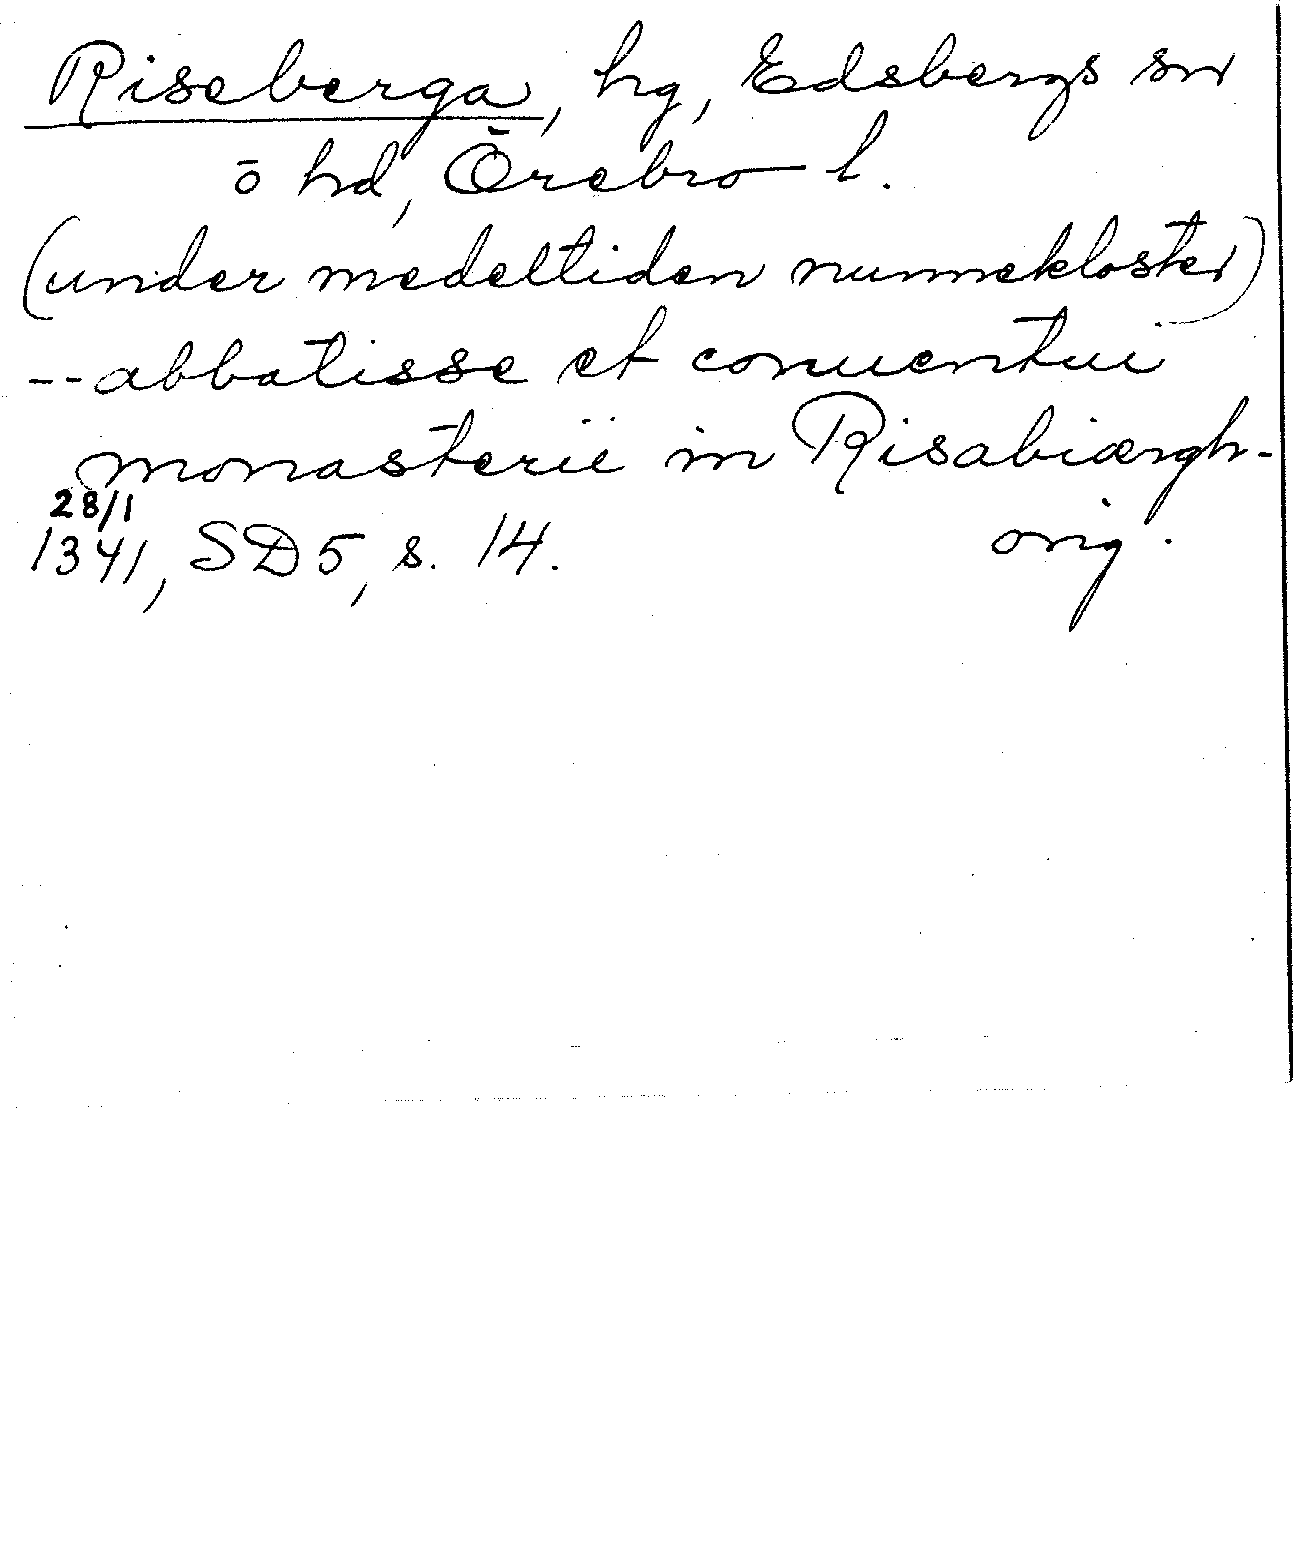 Riseberga, hg, Edsbergs sn
o hd, Örebro l.
(under medeltiden nunnekloster)
-- abbatisse et conuentui
monasterii in Risabiærgh -
28/1 orig.
1341, SD 5, s. 14.